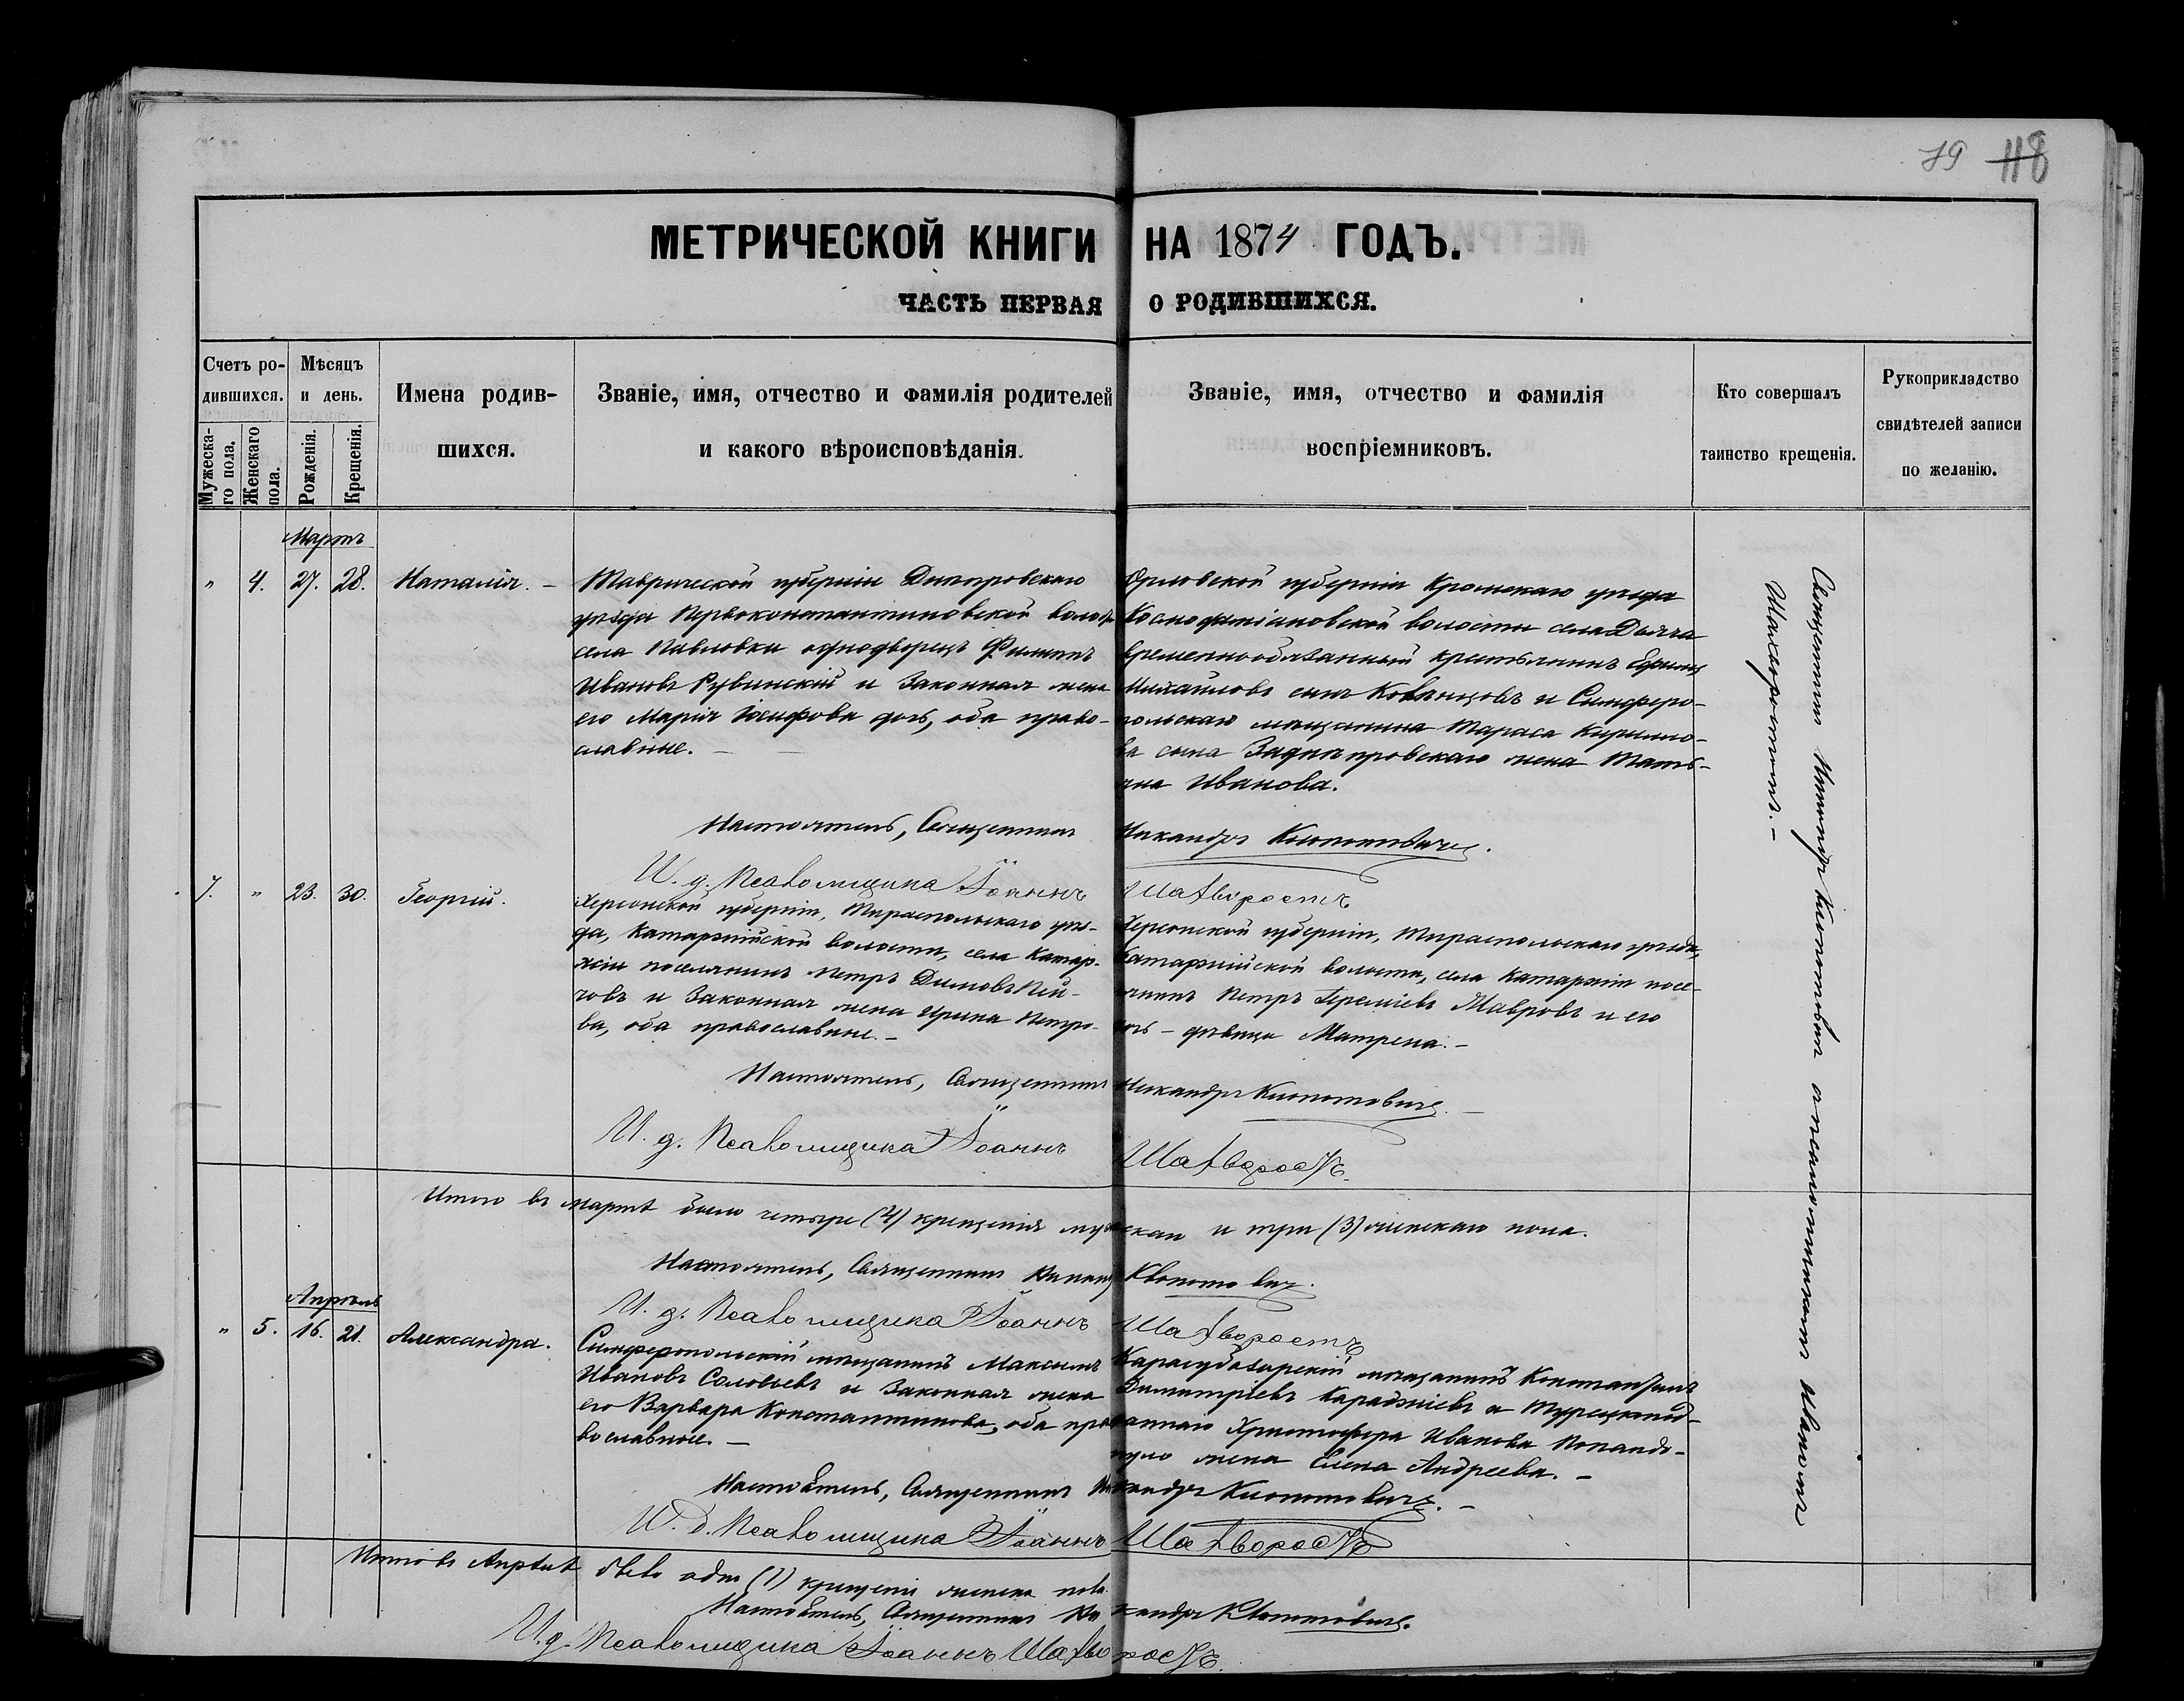 79 118
МЕТРИЧЕСКОЙ КНИГИ НА 1874 ГОДЪ.
ЧАСТЬ ПЕРВАЯ О РОДИВШИХСЯ.
Счетъ ро-
дившихся.
Мужеска-
го пола.
Женскаго
пола.
Мѣсяцъ
и день.
Рожденія.
Крещенія.
Имена родив-
шихся.
Званіе, имя, отчество и фамилія родителей
и какого вѣроисповѣданія.
Званіе, имя, отчество и фамилія
воспріемниковъ.
Кто совершалъ
таинство крещенія.
Рукоприкладство
свидѣтелей записи
по желанію.
Мартъ
" 4. 27. 28. Наталія. —
Таврической губерніи Днепровскаго
уѣзда Первоконстантиновской волости
села Павловки однодворецъ Филиппъ
Ивановъ Рувинскій и законная жена
его Марія Іосифова дочь, оба право-
славные. —
Орловской губерніи Кромскаго уѣзда
Космодаміановской волости села Дьячья
временнообязанный крестьянинъ Ефимъ
Михайловъ сынъ Кованцовъ и Симферо-
польскаго мещанина Тараса Кирилло-
ва сына Заднѣпровскаго жена Тать-
яна Иванова.
Настоятель, Священникъ Никандръ Клопотовичъ.
И. д. Псаломщика Іоаннъ Шахворостъ
7. " 23. 30. Георгій.
Херсонской губерніи, Тираспольскаго уѣз-
да, Катаржійской волости, села Катар-
жіи поселянинъ Петръ Димовъ Пей-
човъ и законная жена Ирина Петро-
ва, оба православные. —
Херсонской губерніи, Тираспольскаго уѣзда,
Катаржійской волости, села Катаржіи посе-
лянинъ Петръ Іереміевъ Мавровъ и его
дочь — дѣвица Матрена. —
Настоятель, Священникъ Никандръ Клопотовичъ. —
И. д. Псаломщика Іоаннъ Шахворостъ.
Итого въ мартѣ было четыре (4) крещенія мужескаго и три (3) женскаго пола.
Настоятель, Священникъ Никандръ Клопотовичъ.
И. д. Псаломщика Іоаннъ Шахворостъ
Апрѣль
" 5. 16. 21. Александра.
Симферопольскій мещанинъ Максимъ
Ивановъ Соловьевъ и законная жена
его Варвара Константинова, оба пра-
вославные. —
Карасубазарскій мещанинъ Константинъ
Димитріевъ Караджіевъ и Турецкопод-
даннаго Христофора Иванова Попандо-
пуло жена Елена Андреева. —
Настоятель, Священникъ Никандръ Клопотовичъ. —
И. д. Псаломщика Іоаннъ Шахворостъ
Итого въ Апрѣлѣ было одно (1) крещеніе женска пола
Настоятель, Священникъ Никандръ Клопотовичъ.
И. д. Псаломщика Іоаннъ Шахворостъ.
Священникъ Никандръ Клопотовичъ с псаломщикомъ Іоанномъ
Шахворостомъ. —